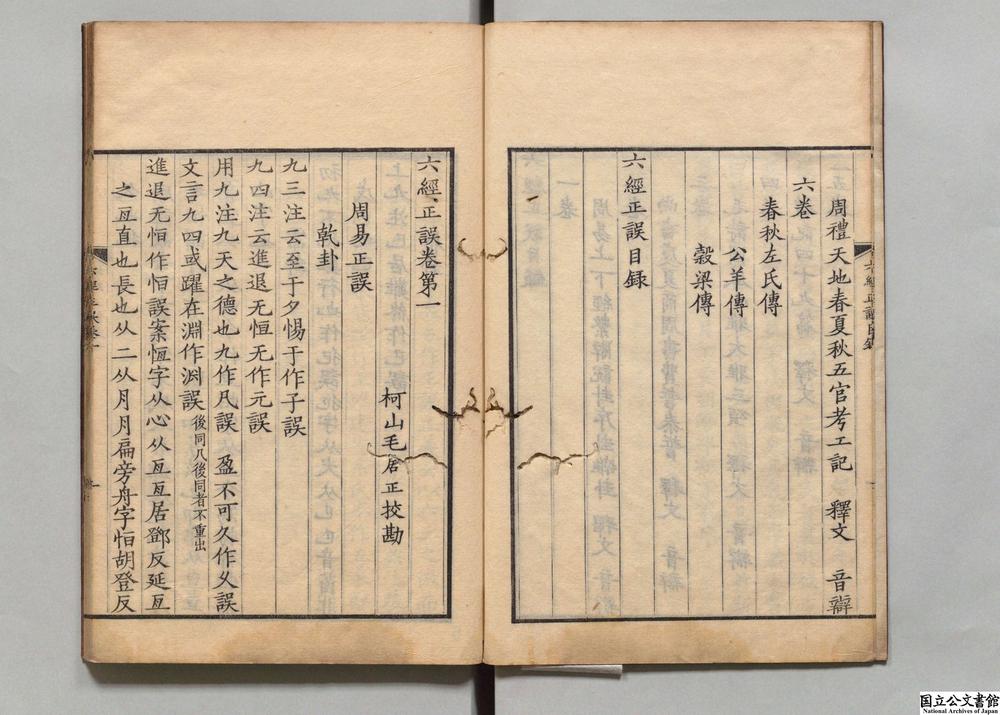 周禮 天地春夏秋五官考工記 釋文 音辯
六卷
春秋左氏傳
公羊傳
穀梁傳
六經正誤目録
六經正誤卷第一
柯山毛居正挍勘
周易正誤
乾卦
九三注云至于夕惕于作子誤
九四注云進退无恒无作元誤
用九注九天之德也九作凡誤 盈不可久作乆誤
文言九四或躍在淵作渕誤後同凡後同者不重出
進退无恒作怕誤案恆字从心从亙亙居鄧反延亙
之亙直也長也从二从月月扁旁舟字怕胡登反
国立公文書館
National Archives of Japan